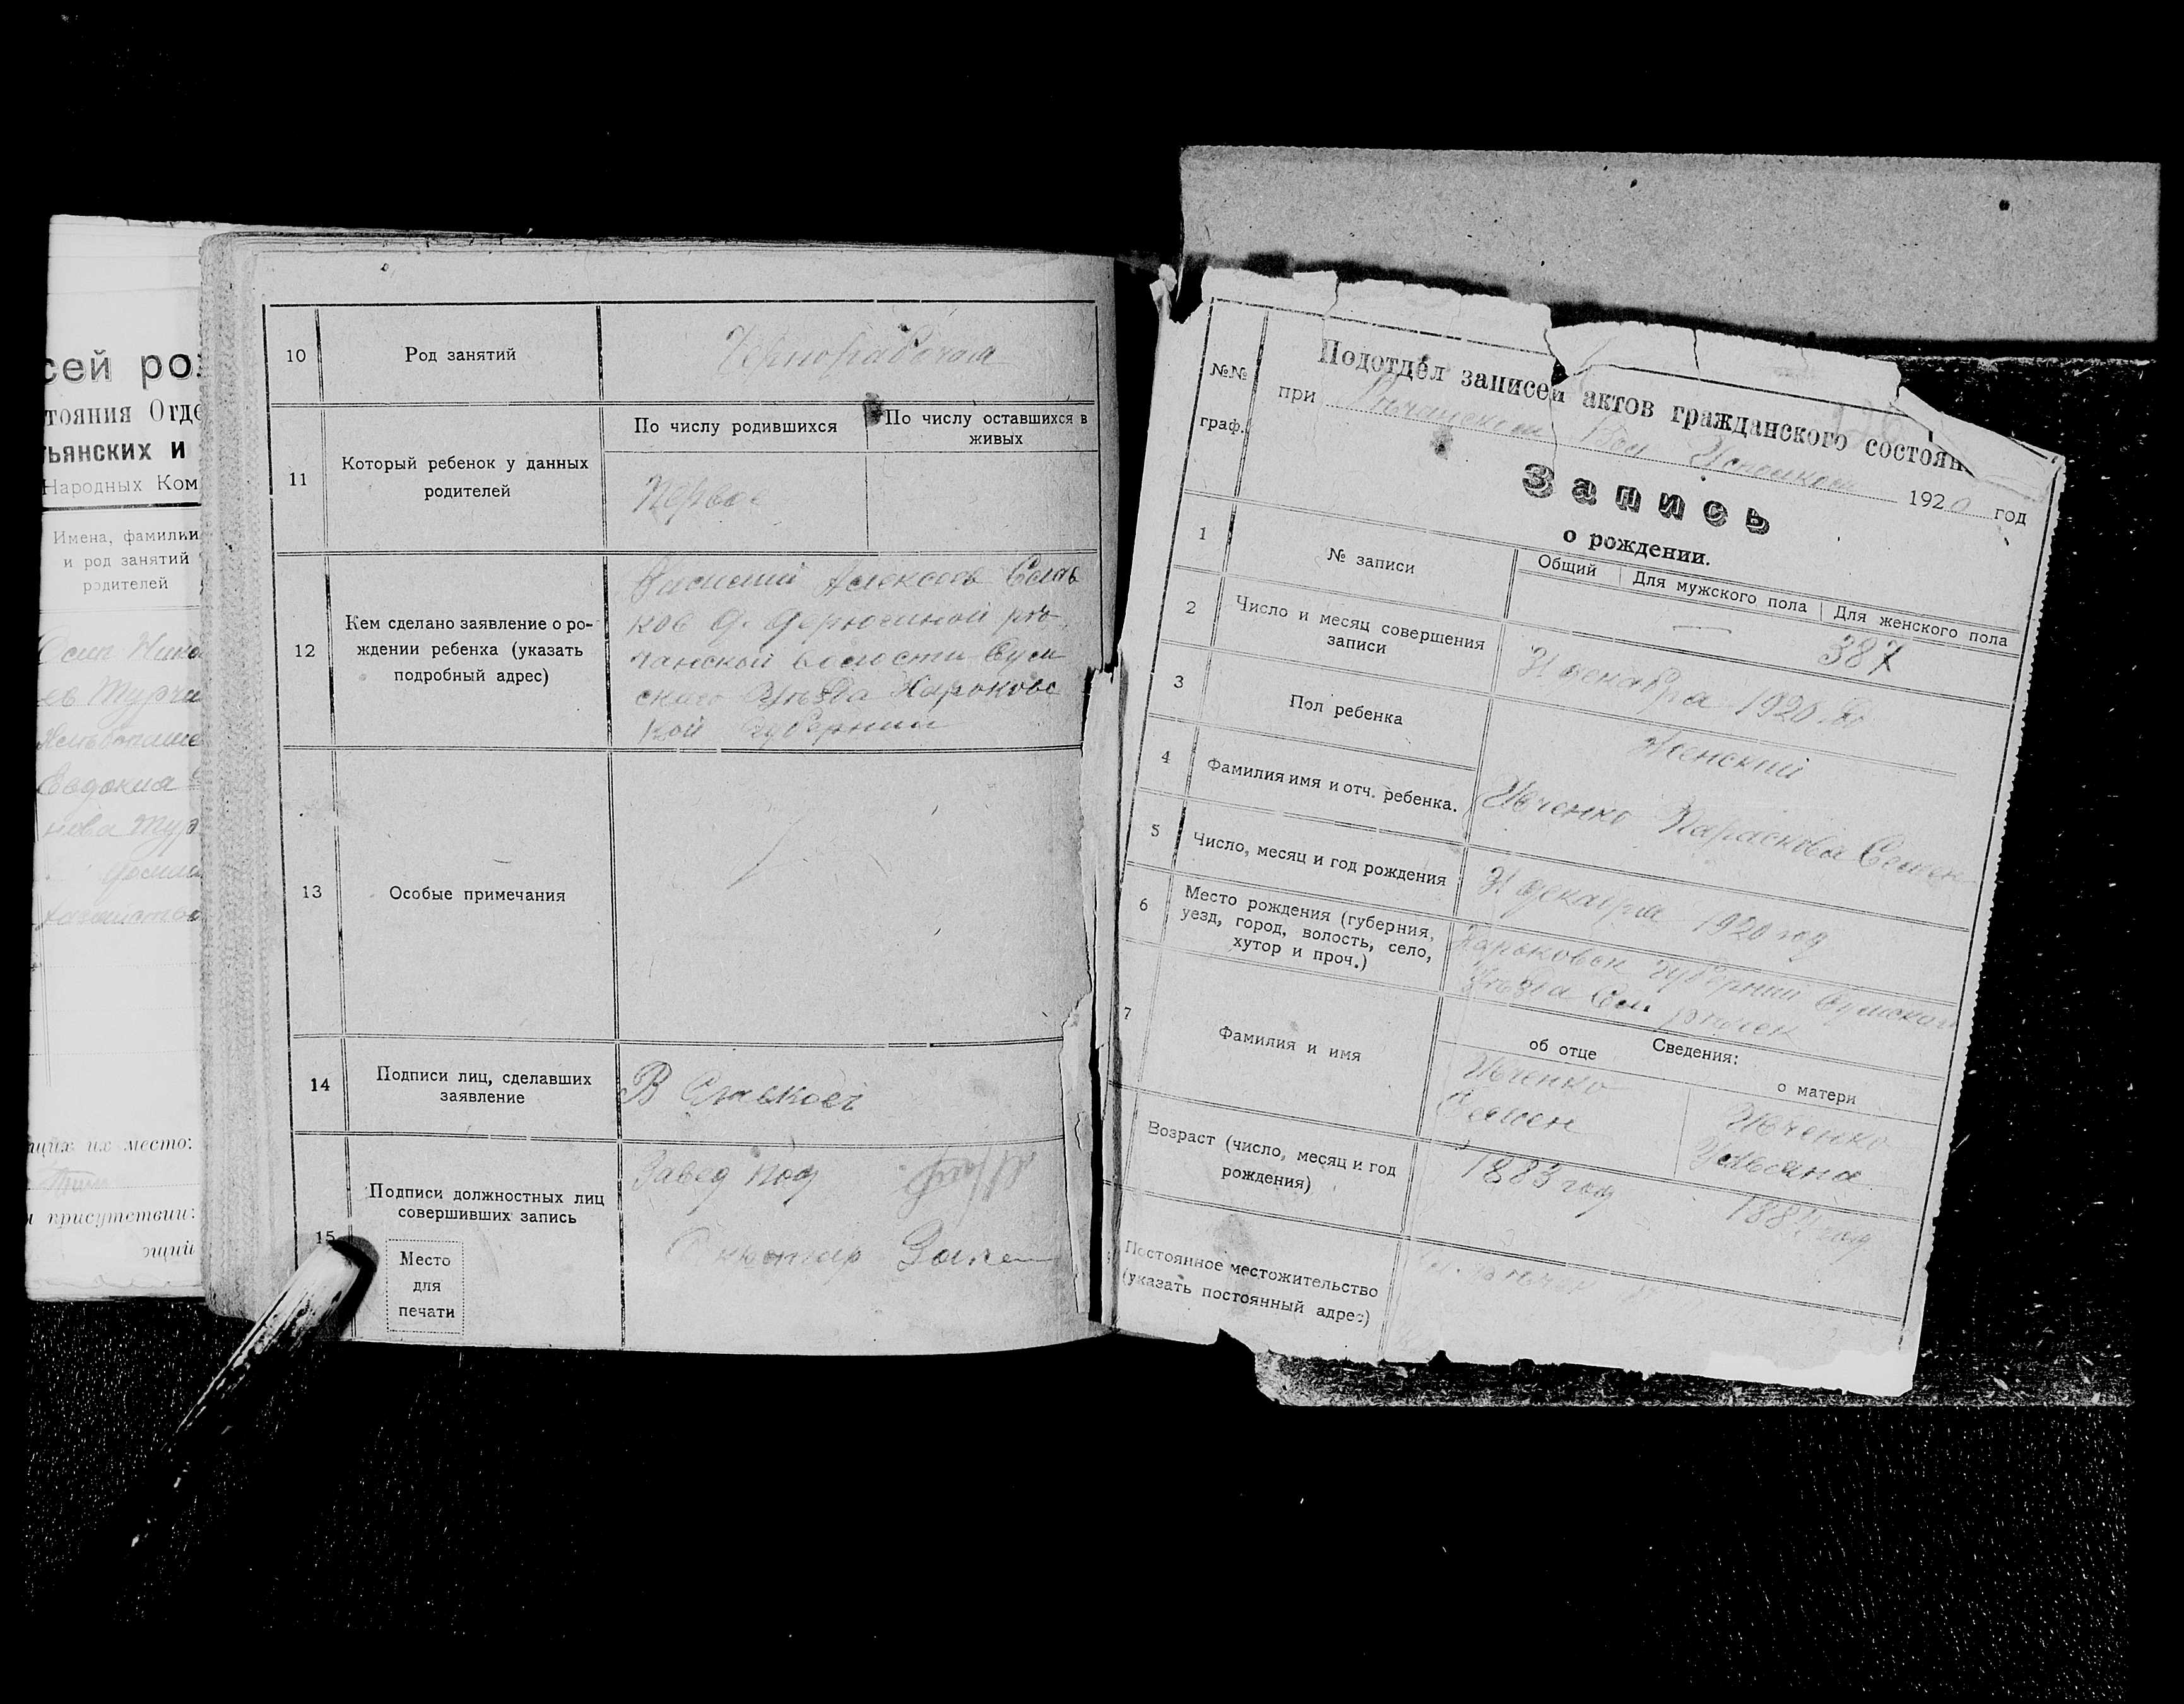 сей ро
тояния Отде
ьянских и
Народных Ком
Имена, фамилии
и род занятий
родителей
Осип Нико
ев Турчи
Евдокия
нова Тур
щих их место:
и присутствии:
ющий
10 Род занятий Чернорабочая
11 Который ребенок у данных родителей
По числу родившихся По числу оставшихся в живых
Первое
12 Кем сделано заявление о ро-
ждении ребенка (указать
подробный адрес)
Василий
ков д. Дерюгиной рѣ
чанской волости Сум
скаго Уѣзда Харьковс
кой губернии
13 Особые примечания
14 Подписи лиц, сделавших
заявление
В
15 Подписи должностных лиц
совершивших запись
Завед Под
Место
для
печати
№№
граф.
Подотдел записей актов гражданского состоян
при Вол 1920 год
Запись
о рождении.
1 № записи
Общий Для мужского пола Для женского пола
— 387
2 Число и месяц совершения
записи
31 декабря 1920
3 Пол ребенка Женский
4 Фамилия имя и отч. ребенка. Ивченко Парасковья Семен
5 Число, месяц и год рождения 31 декабря 1920 год
6 Место рождения (губерния,
уезд, город, волость, село,
хутор и проч.)
Харьковск губернии Сумского
Уѣзда
7 Фамилия и имя
Сведения:
об отце о матери
Ивченко Ивченко
Семен Ульяна
Возраст (число, месяц и год
рождения)
1883 год
Постоянное местожительство
(указать постоянный адрес)